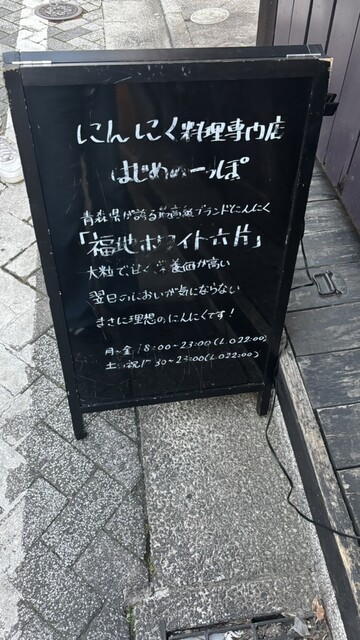 にんにく料理専門店
はじめの一っぽ
青森県が誇る最高級ブランドにんにく
「福地ホワイト六片」
大粒で甘く栄養価が高い
翌日のにおいが気にならない
まさに理想のにんにくです！
月〜金 18:00〜23:00(L.O22:00)
土・祝 17:30〜23:00(L.O22:00)